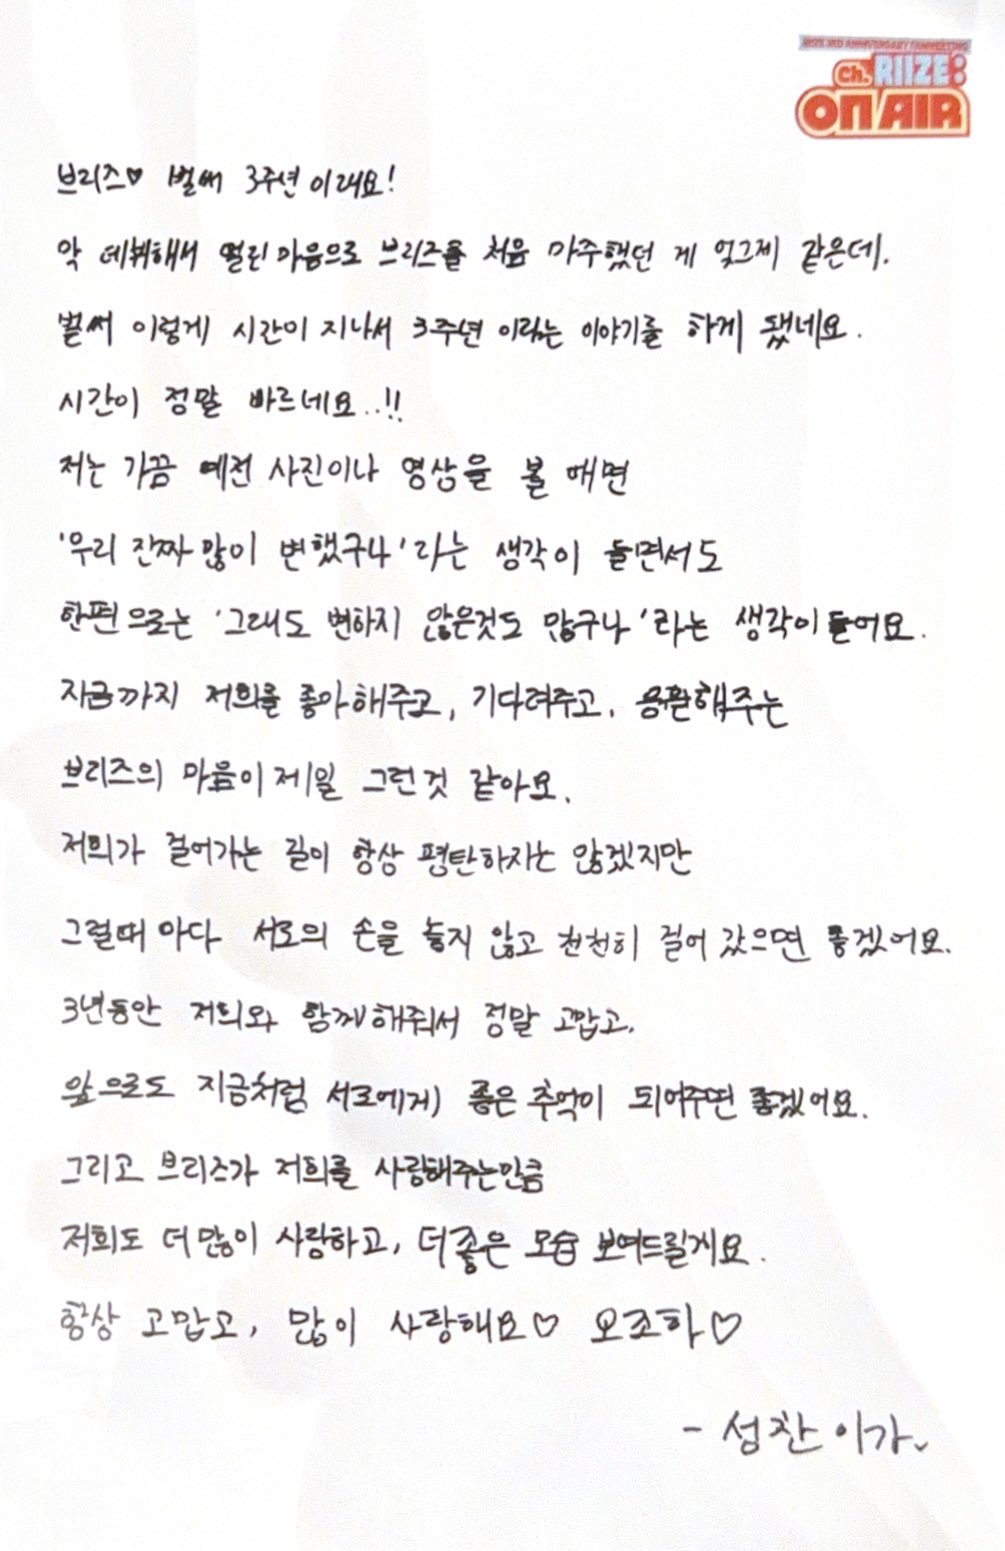 RIIZE 3RD ANNIVERSARY FANMEETING
Ch. RIIZE:
ON AIR
브리즈♡ 벌써 3주년 이래요!
막 데뷔해서 떨린 마음으로 브리즈를 처음 마주했던 게 엊그제 같은데.
벌써 이렇게 시간이 지나서 3주년 이라는 이야기를 하게 됐네요.
시간이 정말 빠르네요..!!
저는 가끔 예전 사진이나 영상을 볼 때면
'우리 진짜 많이 변했구나'라는 생각이 들면서도
한편으로는 '그래도 변하지 않은것도 많구나'라는 생각이 들어요.
지금까지 저희를 좋아해주고, 기다려주고, 응원해주는
브리즈의 마음이 제일 그런것 같아요.
저희가 걸어가는 길이 항상 평탄하지는 않겠지만
그럴때 마다 서로의 손을 놓지 않고 천천히 걸어 갔으면 좋겠어요.
3년동안 저희와 함께해줘서 정말 고맙고,
앞으로도 지금처럼 서로에게 좋은 추억이 되어주면 좋겠어요.
그리고 브리즈가 저희를 사랑해주는만큼
저희도 더 많이 사랑하고, 더 좋은 모습 보여드릴게요.
항상 고맙고, 많이 사랑해요♡ 오조하♡
- 성찬이가.